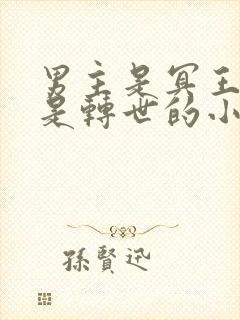 男主是冥王
是轉世的小
孫賢迅